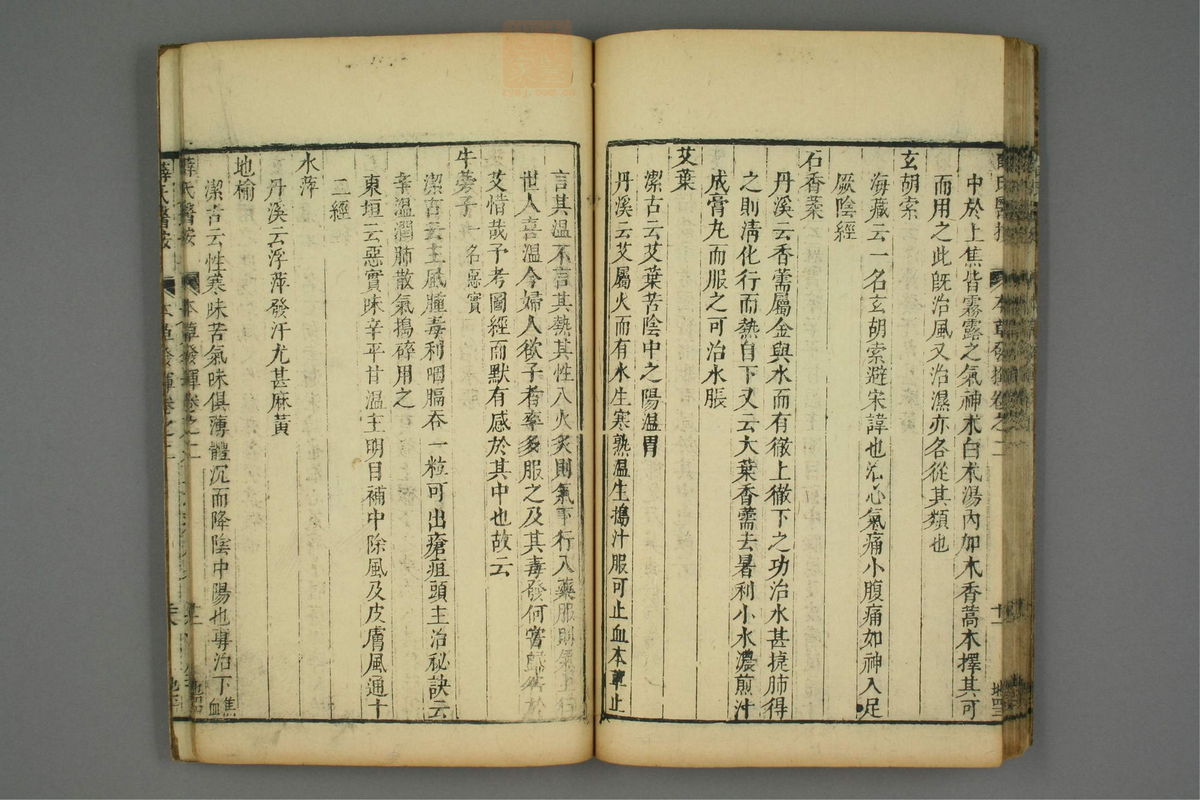 中於上焦皆霧露之氣神术白术湯內加木香蒿本擇其可
而用之此旣治風又治濕亦各從其類也
玄胡索
海藏云一名玄胡索避宋諱也治心氣痛小腹痛如神入足
厥陰經
石香葇
丹溪云香薷屬金與水而有徹上徹下之功治水甚捷肺得
之則淸化行而熱自下又云大葉香薷去暑利小水濃煎汁
成膏丸而服之可治水脹
艾葉
潔古云艾葉苦陰中之陽温胃
丹溪云艾屬火而有水生寒熟温生搗汁服可止血本草止
言其溫不言其熱其性入火灸則氣下行入藥服則氣上行
世人喜温今婦人欲子者率多服之及其毒發何嘗歸咎於
艾惜哉予考圖經而默有感於其中也故云
牛蒡子 一名惡實
潔古云主風腫毒利咽膈吞一粒可出瘡疽頭主治秘訣云
辛温潤肺散氣搗碎用之
東垣云惡實味辛平甘温主明目補中除風及皮膚風通十
二經
水萍
丹溪云浮萍發汗尤甚麻黃
地榆
潔古云性寒味苦氣味俱薄體沉而降陰中陽也專治下焦血
薛氏醫按 本草發揮卷之二